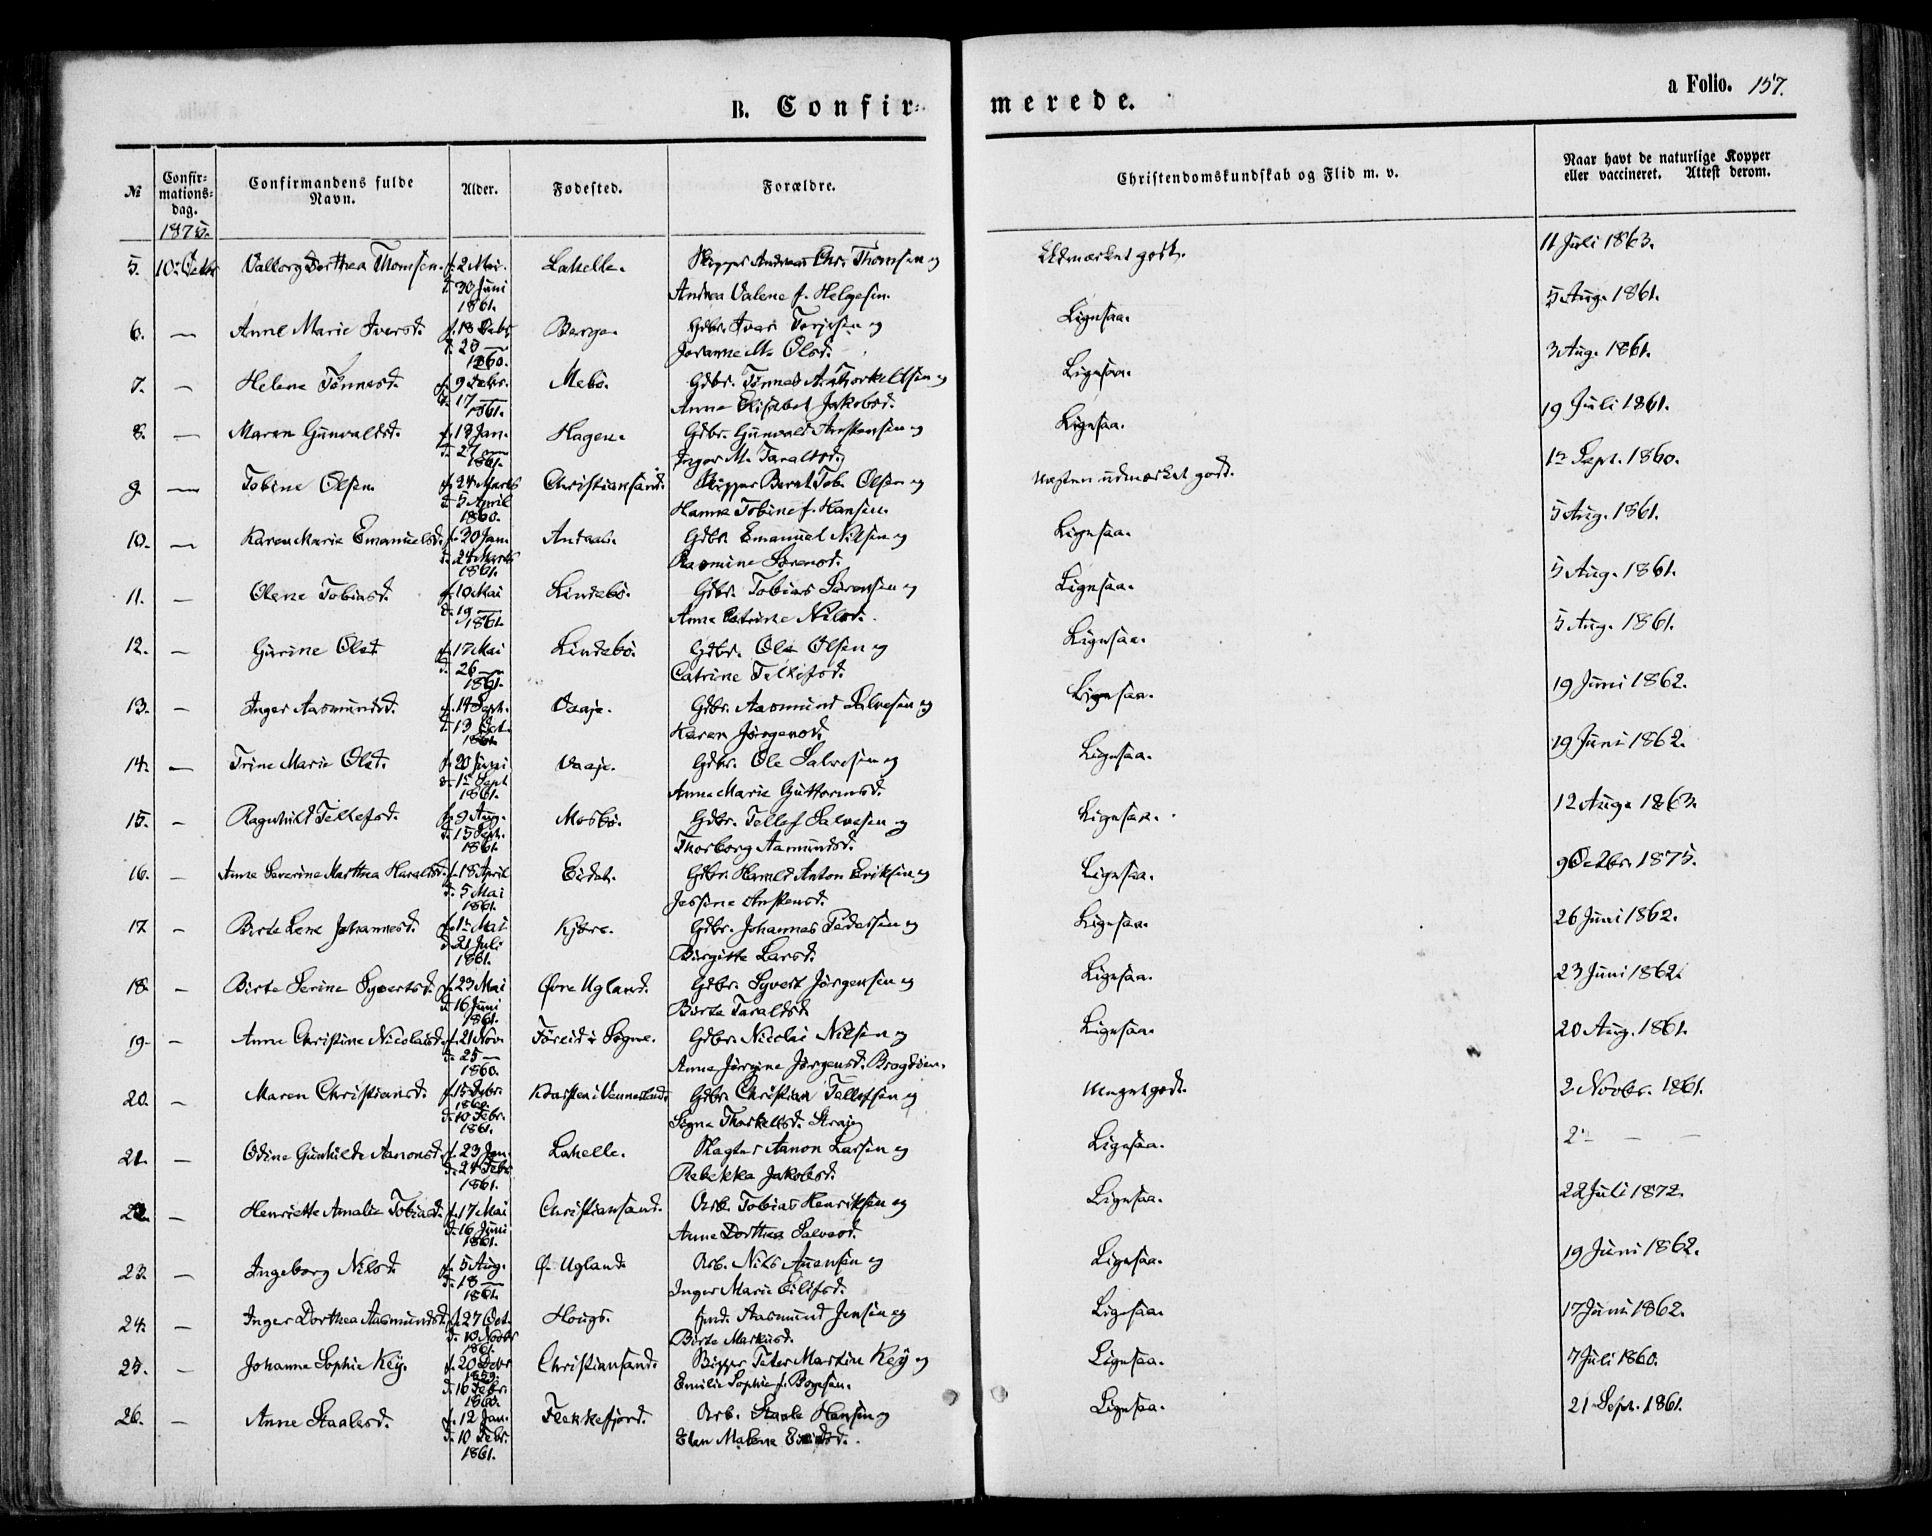 B. Confir-
merede.
a Folio. 157.
№
Confir-
mations-
dag.
Confirmandens fulde
Navn.
Alder.
Fødested.
Forældre.
Christendomskundskab og Flid m. v.
Naar havt de naturlige Kopper
eller vaccineret. Attest derom.
1875.
5. 10. Octbr Valborg Dorthea Thomsen. f. 2 Mai. Lahelle. Skipper Andreas Chr. Thomsen og Udmærket godt. 11 Juli 1863.
d. 30 Juni Andrea Valene f. Helgesen.
1861.
6. — Anne Marie Iversd. f. 18 Febr Berge. Gdbr. Iver Terjesen og Ligesaa. 5 Aug. 1861.
d. 25 — Johanne M. Olsd.
1860.
7. — Helene Tønnesd. f. 9 Febr. Mebø. Gdbr. Tønnes A. Thorkeldsen og Ligesaa. 3 Aug. 1861.
d. 17 — Anne Elisabet Jakobsd.
1861.
8. — Maren Gunvaldsd. f. 18 Jan. Hagen. Gdbr. Gunvald Anstensen og Ligesaa. 19 Juli 1861.
d. 27 — Inger M. Taraldsd.
1861.
9. — Tobine Olsen. f. 24 Marts Christiansand. Skipper Bernt Tob. Olsen og Næsten udmærket godt. 12 Sept. 1860.
d. 5 April Hanna Tobine f. Hansen.
1860.
10. — Karen Marie Emanuelsd. f. 30 Jan. Andaas. Gdbr. Emanuel Nilsen og Ligesaa. 5 Aug. 1861.
d. 24 Marts Rasmine Sørensd.
1861.
11. — Olene Tobiasd. f. 10 Mai Lindebø. Gdbr. Tobias Sørensen og Ligesaa. 5 Aug. 1861.
d. 19 — Anne Catrine Nilsd.
1861.
12. — Gurine Olsd. f. 17 Mai Lindebø. Gdbr. Ole Olsen og Ligesaa. 5 Aug. 1861.
d. 26 — Catrine Tellefsd.
1861.
13. — Inger Aasmundsd. f. 14 Sept. Vaaje. Gdbr. Aasmund Salvesen og Ligesaa. 19 Juni 1862.
d. 13 Oct. Karen Jørgensd.
1861.
14. — Trine Marie Olsd. f. 20 Juni Vaaje. Gdbr. Ole Salvesen og Ligesaa. 19 Juni 1862.
d. 1 Sept Anne Marie Guttormsd.
1861.
15. — Ragnhild Tellefsd. f. 9 Aug. Mosbø. Gdbr. Tellef Salvesen og Ligesaa. 12 Aug. 1863.
d. 15 Sept. Thorborg Aamundsd.
1861.
16. — Anne Severine Marthea Haraldsd. f. 18 April Eidet. Gdbr. Harald Anton Eriksen og Ligesaa. 9 Octbr. 1875.
d. 5 Mai Jessine Anstensd.
1861.
17 — Birte Lene Johannesd. f. 1 Mai Kjære. Gdbr. Johannes Pedersen og Ligesaa. 26 Juni 1862.
d. 21 Juli Birgitte Larsd.
1861.
18. — Birte Serine Syvertsd. f. 23 Mai Øvre Ugland. Gdbr. Syvert Jørgensen og Ligesaa. 23 Juni 1862.
d. 16 Juni Birte Taraldsd.
1861.
19. — Anne Christine Nicolaisd. f. 21 Nov. i Søgne. Gdbr. Nicolai Nilsen og Ligesaa. 20 Aug. 1861.
d. 25 — Anne Jørgine Jørgensd. Bragdøen.
1860.
20. — Maren Christiansd. f. 15 Debr. i Vennesland. Gdbr. Christian Tellefsen og Meget godt. 2 Novbr. 1861.
1860.
d. 10 Febr. Signe Thorkeldsd. Straie
1861.
21. — Odine Gunhilde Aanonsd. f. 23 Jan. Lahelle. Aanon Larsen og Ligesaa. 2 — —
d. 24 Febr. Rebekka Jakobsd.
1861.
22. — Henriette Amalie Tobiasd. f. 17 Mai Christiansand. Arb. Tobias Henriksen og Ligesaa. 22 Juli 1872.
d. 16 Juni Anne Dorthea Salvesd.
1861.
23. — Ingeborg Nilsd. f. 5 Aug. Ø. Ugland Arb. Nils Auensen og Ligesaa. 19 Juni 1862.
d. 18 — Inger Marie Eilifsd.
1861.
24. — Inger Dorthea Aasmundsd. f. 27 Oct. Hougs. Aasmund Jensen og Ligesaa. 17 Juni 1862.
d. 10 Novbr Birte Markusd.
1861.
25. — Johanne Sophie Keÿ. f. 20 Debr Christiansand. Skipper Peter Martin Keÿ og Ligesaa. 7 Juli 1860.
1859.
d. 16 Febr. Emilie Sophie f. Bogesen.
1860.
26. — Anne Staalesd. f. 12 Jan. Flekkefjord. Arb. Staale Hansen og Ligesaa. 21 Sept. 1861.
d. 10 Febr. Elen Malene
1861.